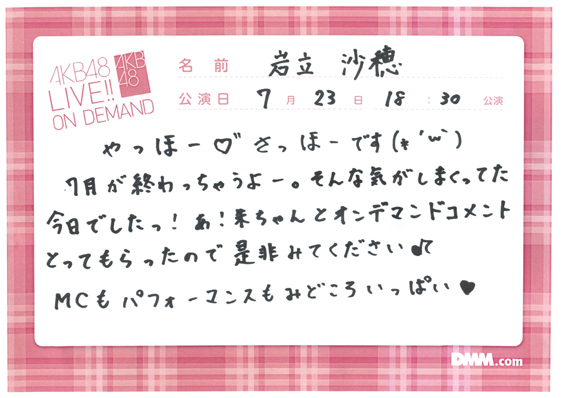 AKB48
LIVE!!
ON DEMAND
AKB
48
名前 岩立 沙穂
公演日 7月 23日 18:30公演
やっほー♡さっほーです(*´ω`)
7月が終わっちゃうよー。そんな気がしまくってた
今日でしたっ！あ！朱ちゃんとオンデマンドコメント
とってもらったので是非みてください♪
MCもパフォーマンスもみどころいっぱい♥
DMM.com